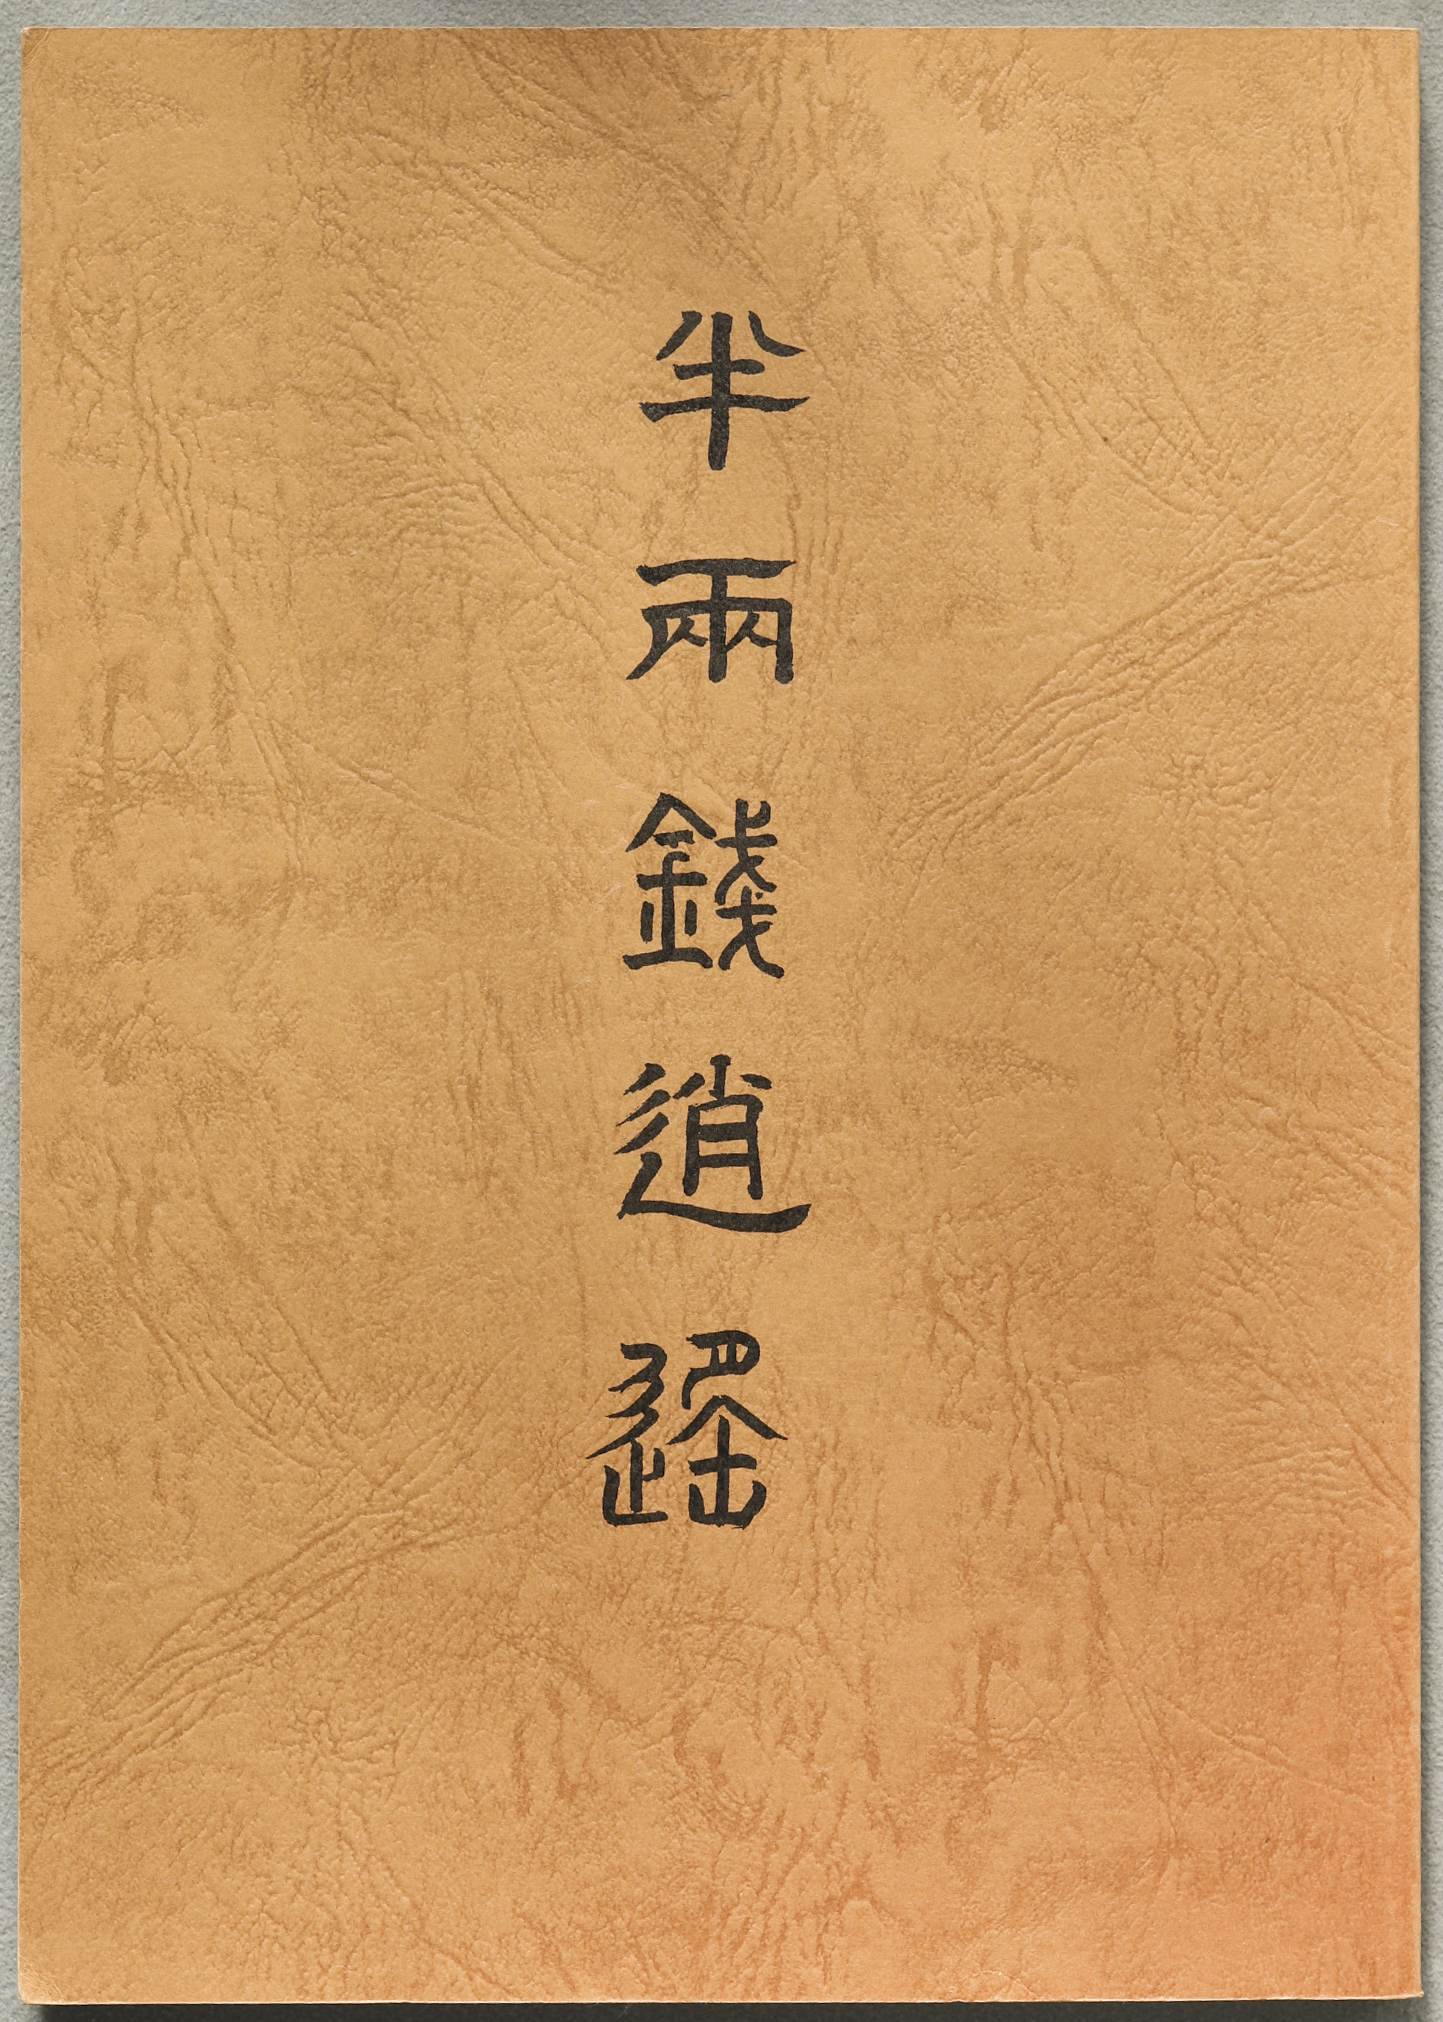 半兩錢逍遙